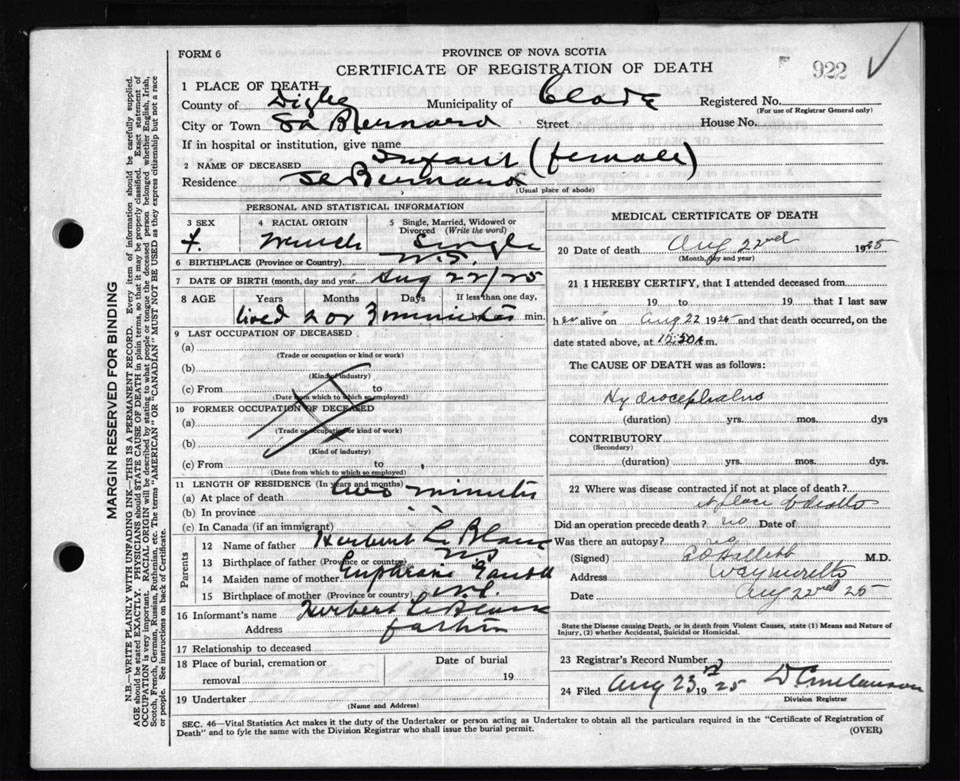 FORM 6
PROVINCE OF NOVA SCOTIA
CERTIFICATE OF REGISTRATION OF DEATH
922
1 PLACE OF DEATH
County of Digby Municipality of Clare Registered No.
(For use of Registrar General only)
City or Town St Bernard Street House No.
If in hospital or institution, give name
2 NAME OF DECEASED Infant (female)
Residence St Bernard
(Usual place of abode)
PERSONAL AND STATISTICAL INFORMATION
3 SEX 4 RACIAL ORIGIN 5 Single, Married, Widowed or Divorced (Write the word)
f. French Single
6 BIRTHPLACE (Province or Country) N.S.
7 DATE OF BIRTH (month, day and year) Aug 22/25
8 AGE Years Months Days If less than one day,
lived 2 or 3 minutes min.
9 LAST OCCUPATION OF DECEASED
(a)
(Trade or occupation or kind or work)
(b)
(Kind of industry)
(c) From to
(Date from which to which so employed)
10 FORMER OCCUPATION OF DECEASED
(a)
(Trade or occupation or kind of work)
(b)
(Kind of industry)
(c) From to
(Date from which to which so employed)
11 LENGTH OF RESIDENCE (In years and months)
(a) At place of death two minutes
(b) In province " "
(c) In Canada (if an immigrant)
Parents
12 Name of father Herbert Le Blanc
13 Birthplace of father (Province or country) NS
14 Maiden name of mother
15 Birthplace of mother (Province or country) N.S.
16 Informant's name Herbert LeBlanc
Address father
17 Relationship to deceased
18 Place of burial, cremation or removal Date of burial 19
19 Undertaker
(Name and Address)
MEDICAL CERTIFICATE OF DEATH
20 Date of death Aug 22nd 1925
(Month, day and year)
21 I HEREBY CERTIFY, that I attended deceased from
19 to 19 that I last saw
her alive on Aug 22 1925 and that death occurred, on the
date stated above, at 12:30 A m.
The CAUSE OF DEATH was as follows:
Hydrocephalus
(duration) yrs. mos. dys
CONTRIBUTORY
(Secondary)
(duration) yrs. mos. dys.
22 Where was disease contracted if not at place of death?
at place of death
Did an operation precede death? no Date of
Was there an autopsy? no
(Signed) M.D.
Address Weymouth
Date Aug 22nd 25
State the Disease causing Death, or in death from Violent Causes, state (1) Means and Nature of Injury, (2) whether Accidental, Suicidal or Homicidal.
23 Registrar's Record Number 2
24 Filed Aug 23rd 1925
Division Registrar
SEC. 46—Vital Statistics Act makes it the duty of the Undertaker or person acting as Undertaker to obtain all the particulars required in the "Certificate of Registration of
Death" and to fyle the same with the Division Registrar who shall issue the burial permit. (OVER)
MARGIN RESERVED FOR BINDING
N.B.—WRITE PLAINLY WITH UNFADING INK—THIS IS A PERMANENT RECORD. Every item of information should be carefully supplied.
AGE should be stated EXACTLY. PHYSICIANS should STATE CAUSE OF DEATH in plain terms, so that it may be properly classified. Exact statement of
OCCUPATION is very important. RACIAL ORIGIN will be described by stating to what people or tongue the deceased person belonged whether English, Irish,
Scotch, French, German, Russian, Ruthenian, etc. The terms "AMERICAN" or "CANADIAN" MUST NOT BE USED as they express citizenship but not a race
or people. See instructions on back of Certificate.